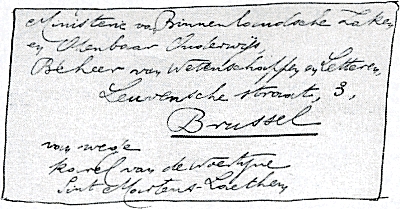 Ministerie van Binnenlandsche Zaken
en Openbaar Onderwijs,
Beheer van Wetenschappen en Letteren,
Leuvensche straat, 3,
Brussel
van wege
Karel van de Woestijne
Sint Martens-Laethem